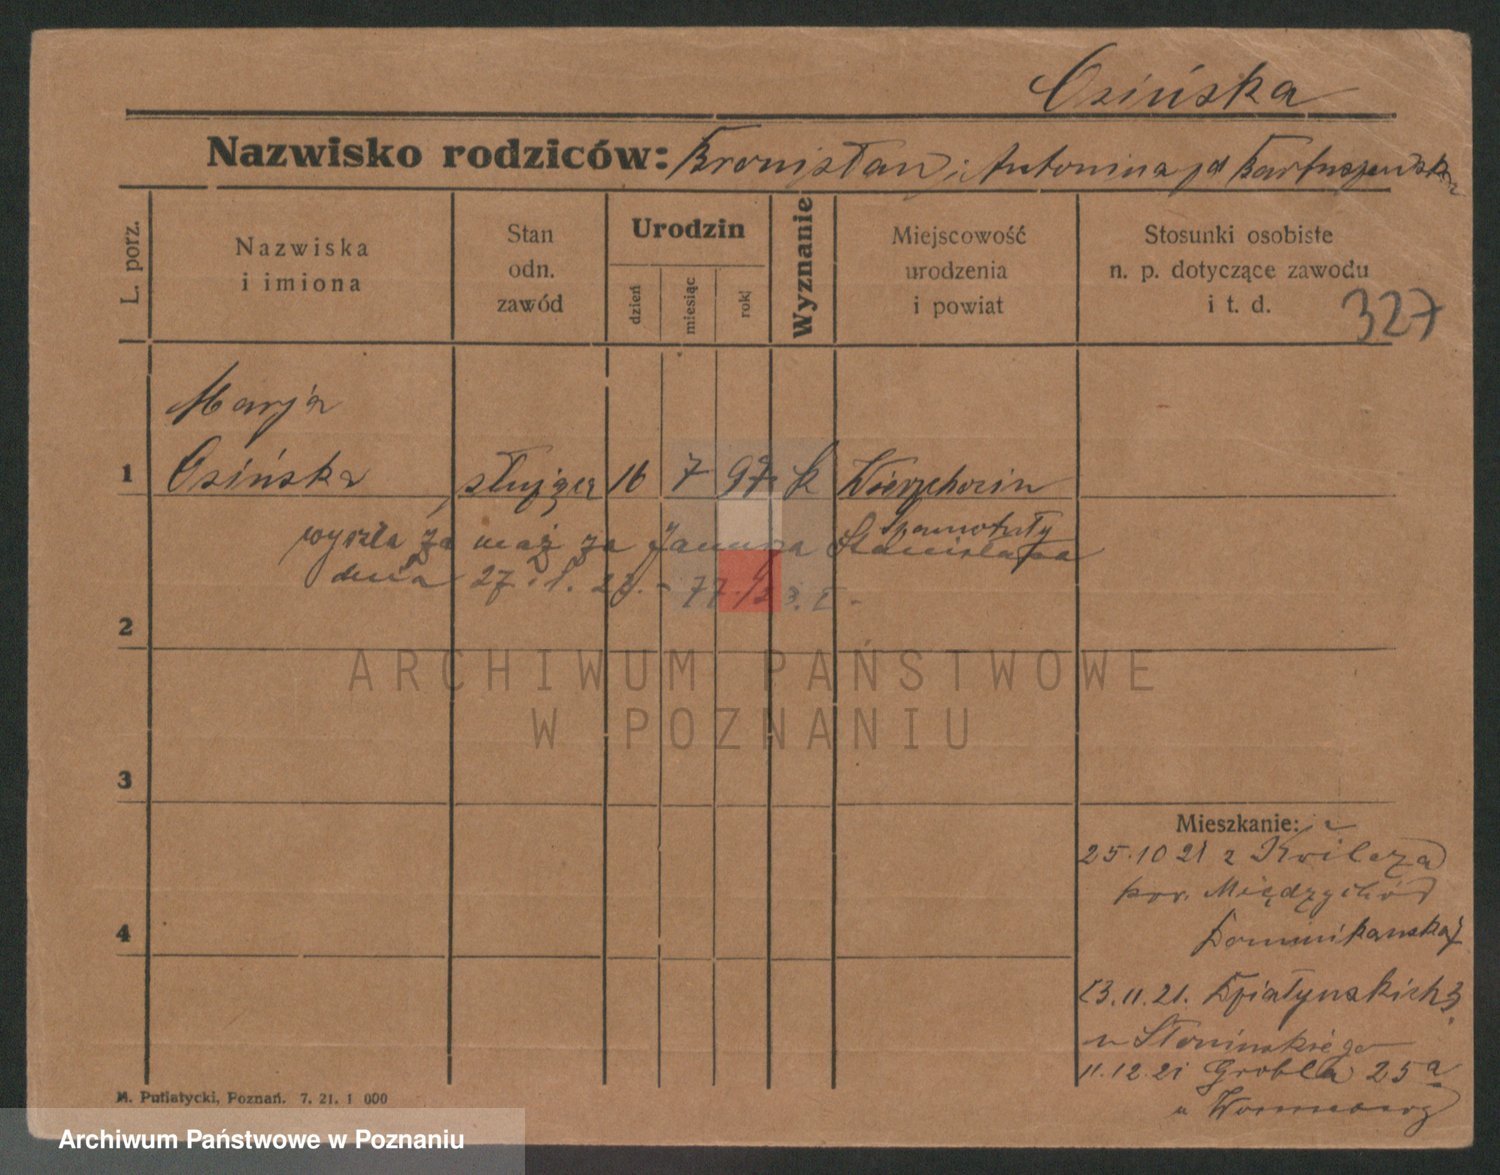 Osińska
Nazwisko rodziców: Bronisław i Antonina
L. porz.
Nazwiska i imiona
Stan odn. zawód
Urodzin
dzień
miesiąc
rok
Wyznanie
Miejscowość urodzenia i powiat
Stosunki osobiste n. p. dotyczące zawodu i t. d.
327
Marja
1 Osińska służąca 16 7 97 k Wierzchocin
Szamotuły
wyszła za mąż za Stanisława
dnia 27.
2
ARCHIWUM PAŃSTWOWE
W POZNANIU
3
Mieszkanie:
25.10 21 z Kwilcza
pow. Międzychód
4
Dominikańska
13.11.21. Działyńskich 3
u Słonińskiego
11.12.21 Grobla 25a
u
M. Putiatycki, Poznań. 7. 21. 1 000
Archiwum Państwowe w Poznaniu